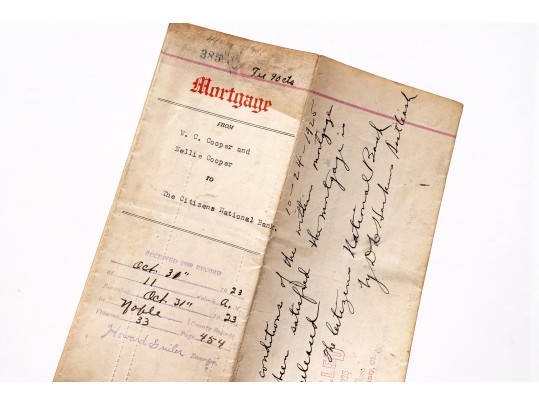 385
Fee 90cts
Mortgage
FROM
W. C. Cooper and
Nellie Cooper
TO
The Citizens National Bank.
RECEIVED FOR RECORD
Oct. 31" 1923
at 11 o'clock A. M.
Recorded Oct 31" 1923
in Noble County Record
Volume 33 Page 454
Howard
10-24-1925
conditions of the within mortgage
been satisfied the mortgage is
released
the Citizens National Bank
by